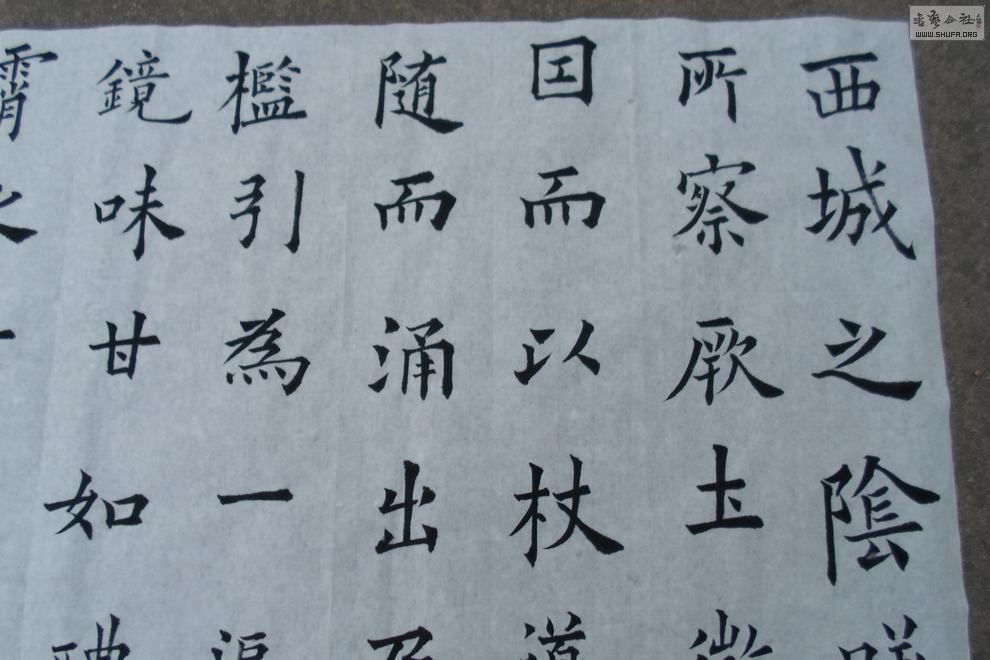 西城之陰
所察厥土微
囙而以杖導
随而涌出乃
檻引為一
鏡味甘如醴
霄之
書藝公社
WWW.SHUFA.ORG